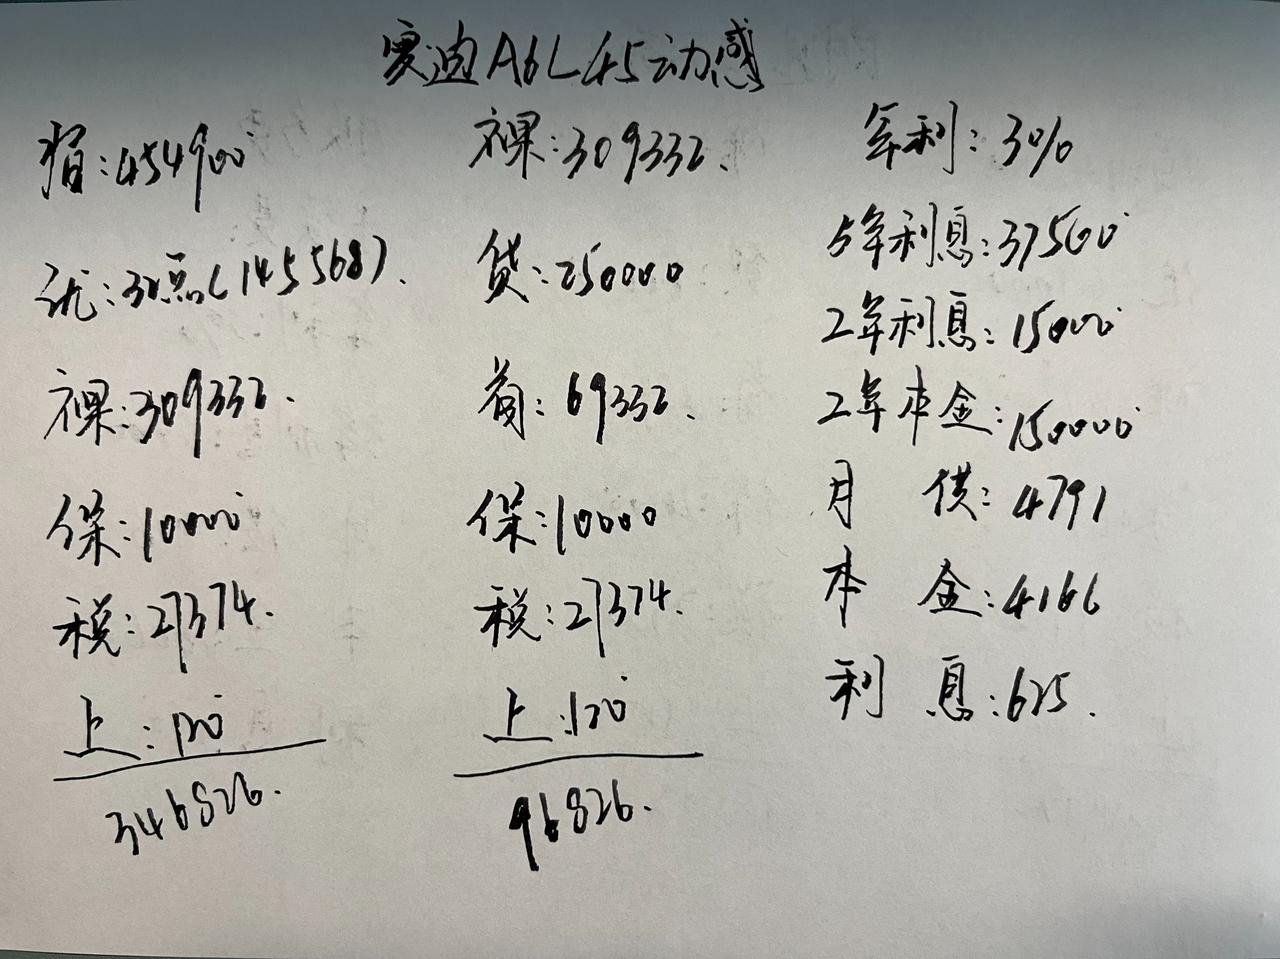 奥迪A6L45动感
指:454900
优:32点(145568).
裸:309332.
保:10000
税:27374.
上:120
346826.
裸:309332.
贷:250000
首:69332.
保:10000
税:27374.
上:120
96826.
年利:3%
5年利息:37500
2年利息:15000
2年本金:150000
月 供:4791
本 金:4166
利 息:625.